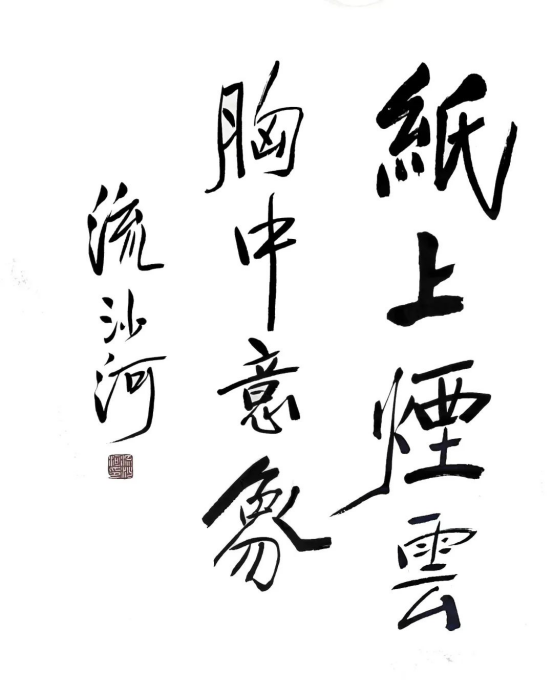 紙上煙雲
胸中意象
流沙河